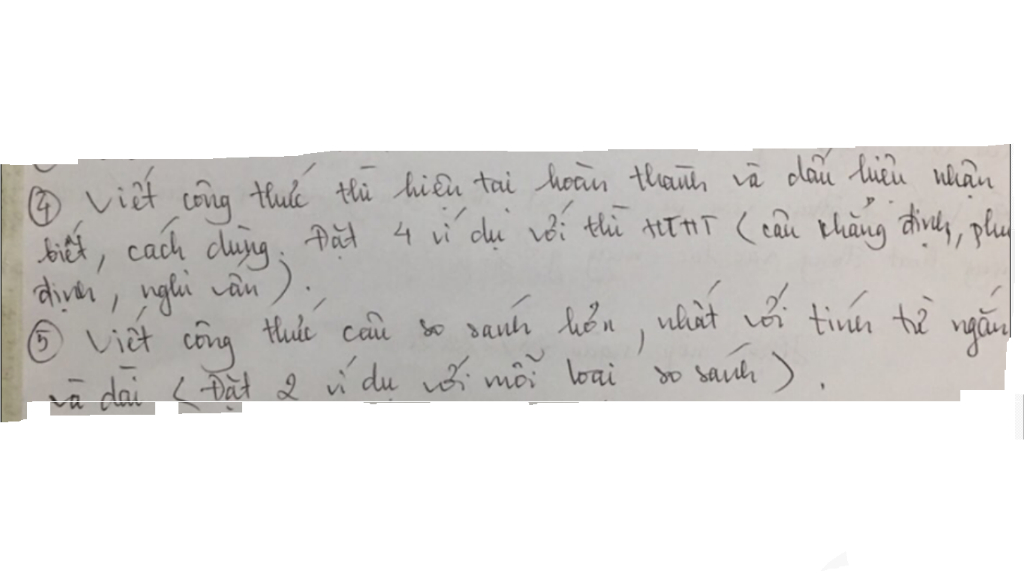 ④ Viết công thức thì hiện tại hoàn thành và dấu hiệu nhận
biết, cách dùng. Đặt 4 ví dụ với thì HTHT (câu khẳng định, phủ
định, nghi vấn).
⑤ Viết công thức câu so sánh hơn, nhất với tính từ ngắn
và dài (Đặt 2 ví dụ với mỗi loại so sánh).